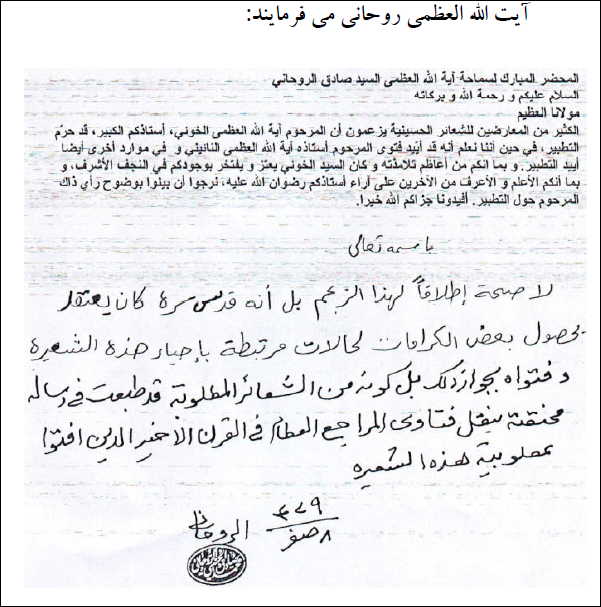 آیت الله العظمی روحانی می فرمایند:
المحضر المبارك لسماحة آية الله العظمى السيد صادق الروحاني
السلام عليكم و رحمة الله و بركاته
مولانا العظيم
الكثير من المعارضين للشعائر الحسينية يزعمون أن المرحوم آية الله العظمى الخوئي، أستاذكم الكبير، قد حرّم
التطبير، في حين أننا نعلم أنه قد أيّد فتوى المرحوم أستاذه آية الله العظمى النائيني و في موارد أخرى أيضا
أييد التطبير. و بما أنكم من أعاظم تلامذته و كان السيد الخوئي يعتز و يفتخر بوجودكم في النجف الأشرف، و
بما أنكم الأعلم و الأعرف من الآخرين على آراء أستاذكم رضوان الله عليه، نرجوا أن بينوا بوضوح رأي ذاك
المرحوم حول التطبير. أفيدونا جزاكم الله خيرا.
باسمه تعالى
لا صحة إطلاقاً لهذا الزعم بل أنه قدس سره كان يعتقد
بحصول بعض الكرامات لحالات مرتبطة بإحياء هذه الشعيرة
و فتواه بجواز ذلك بل كونه من الشعائر المطلوبة قد طبعت في رسالة
بنقل فتاوى المراجع العظام في القرن الأخير الذين افتوا
بمطلوبية هذه الشعيره
٨ صفر
الروحاني